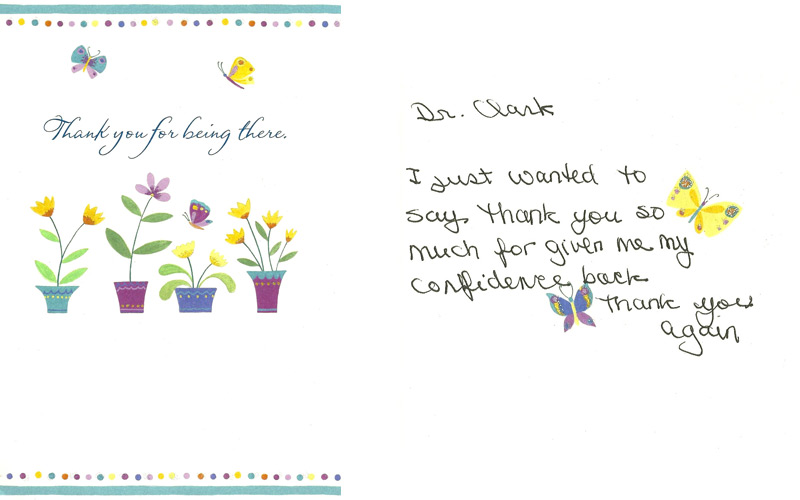 Thank you for being there.
Dr. Clark
I just wanted to
say, thank you so
much for given me my
confidence back
Thank you
again